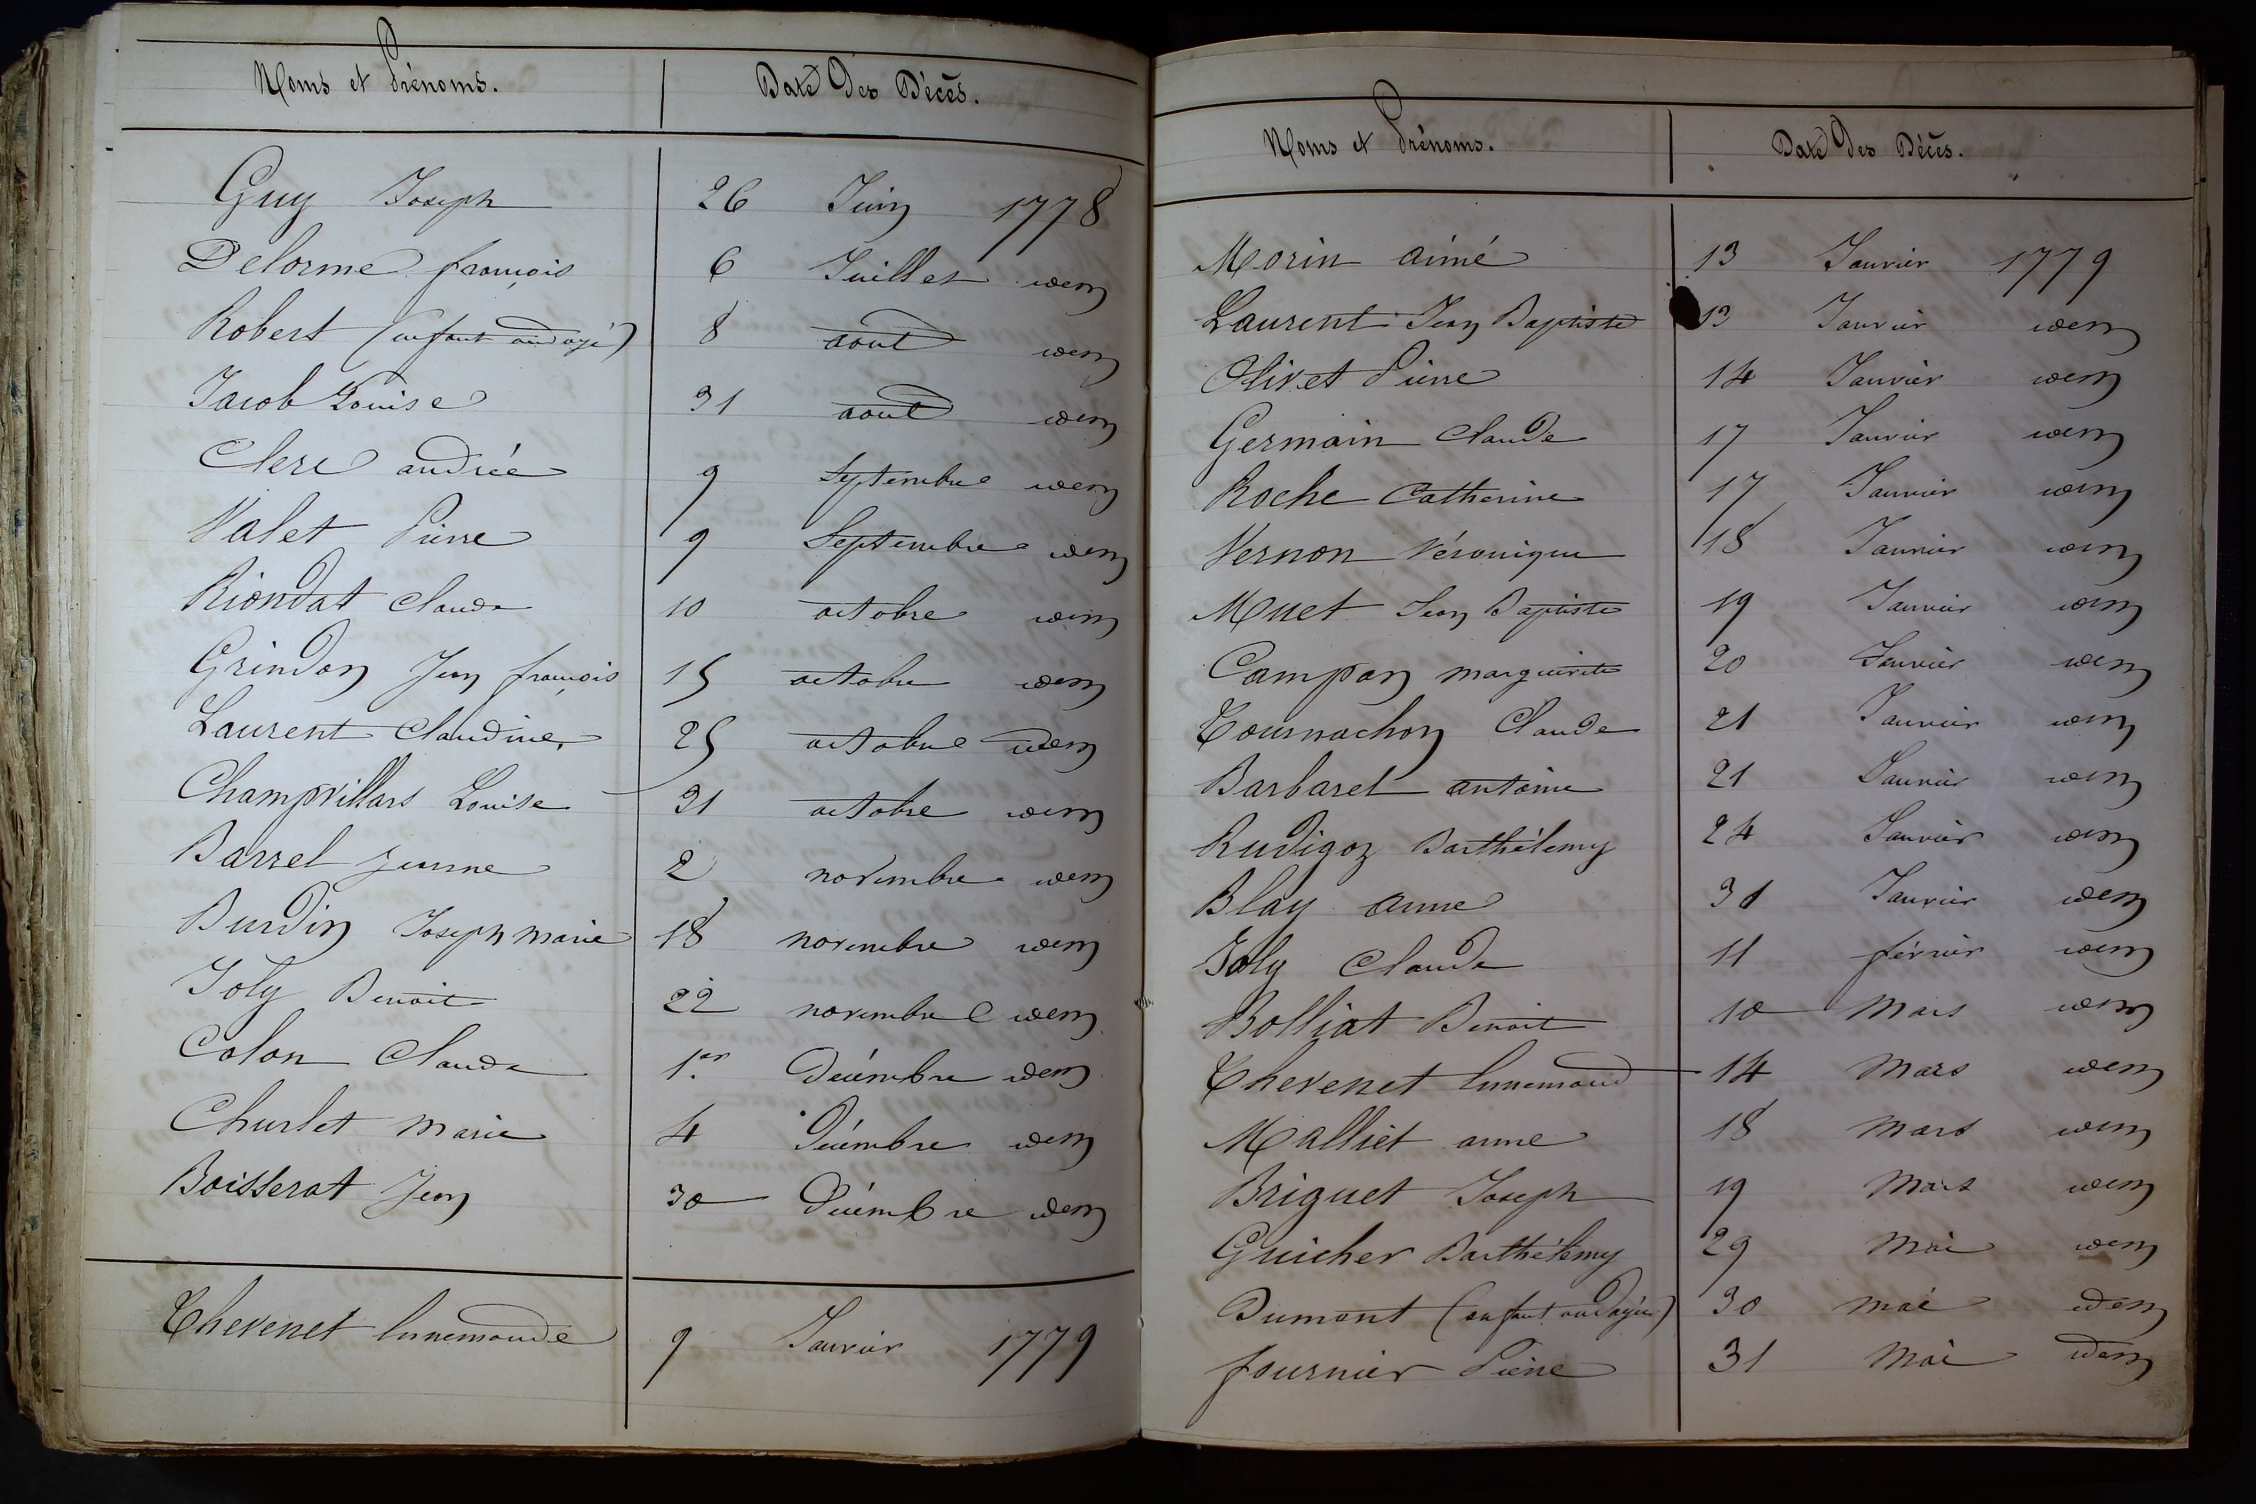 Noms et Prénoms. Date des Décès.
Guy Joseph 26 Juin 1778
Delorme françois 6 Juillet idem
Robert (enfant ondoyé) 8 aout idem
Jacob Louise 31 aout idem
Clerc andrée 9 Septembre idem
Valet Pierre 9 Septembre idem
Riondat Claude 10 octobre idem
Grindon Jean françois 15 octobre idem
Laurent Claudine 25 octobre idem
Champvillars Louise 31 octobre idem
Barrel Jeanne 2 novembre idem
Burdin Joseph marie 18 novembre idem
Joly Benoit 22 novembre idem
Colon Claude 1er Décembre idem
Churlet Marie 4 Décembre idem
Boisserat Jean 30 Décembre idem
Thevenet Ennemonde 9 Janvier 1779
Noms et Prénoms. Date des Décès.
Morin aimé 13 Janvier 1779
Laurent Jean Baptiste 13 Janvier idem
Olivet Pierre 14 Janvier idem
Germain Claude 17 Janvier idem
Roche Catherine 17 Janvier idem
Vernon Véronique 18 Janvier idem
Muet Jean Baptiste 19 Janvier idem
Campan marguerite 20 Janvier idem
Tournachon Claude 21 Janvier idem
Barbaret antoine 21 Janvier idem
Rudigoz Barthélemy 24 Janvier idem
Blay anne 31 Janvier idem
Joly Claude 11 février idem
Bolliat Benoit 10 Mars idem
Thevenet Ennemond 14 Mars idem
Malliet anne 18 Mars idem
Briguet Joseph 19 Mars idem
Guicher Barthélemy 29 Mai idem
Dumont (enfant ondoyée) 30 mai idem
fournier Pierre 31 Mai idem